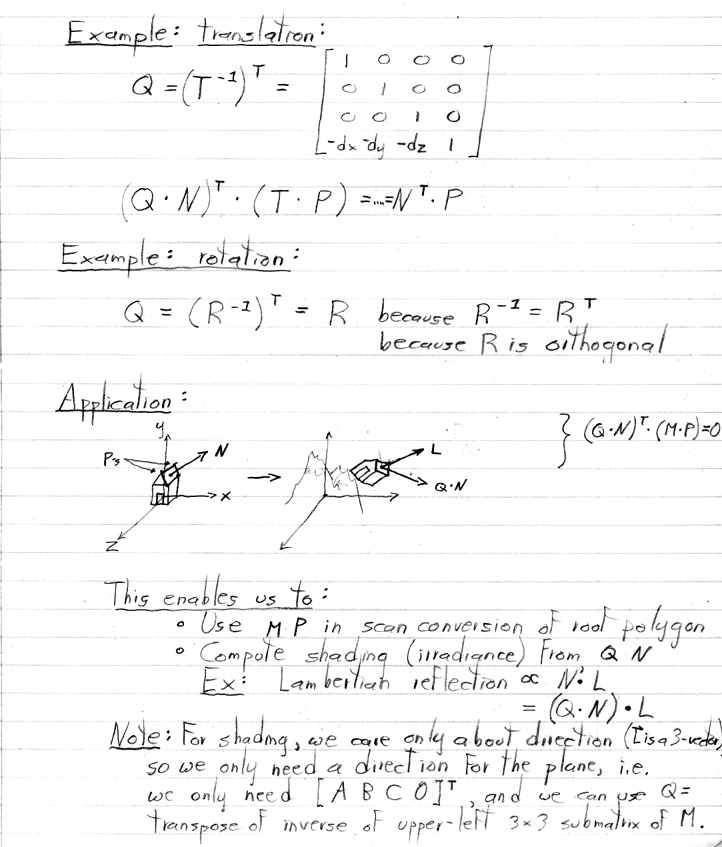 Example: translation:
Q = (T⁻¹)ᵀ = [ 1 0 0 0
0 1 0 0
0 0 1 0
-dx -dy -dz 1 ]
(Q · N)ᵀ · (T · P) =...= Nᵀ · P
Example: rotation:
Q = (R⁻¹)ᵀ = R because R⁻¹ = Rᵀ
because R is orthogonal
Application:
y
P's
N
x
z
→
L
Q·N
} (Q·N)ᵀ·(M·P)=0
This enables us to:
• Use M P in scan conversion of roof polygon
• Compute shading (irradiance) from Q N
Ex: Lambertian reflection ∝ N'· L
= (Q·N) · L
Note: For shading, we care only about direction (L is a 3-vector)
so we only need a direction for the plane, i.e.
we only need [A B C 0]ᵀ, and we can use Q=
transpose of inverse of upper-left 3×3 submatrix of M.